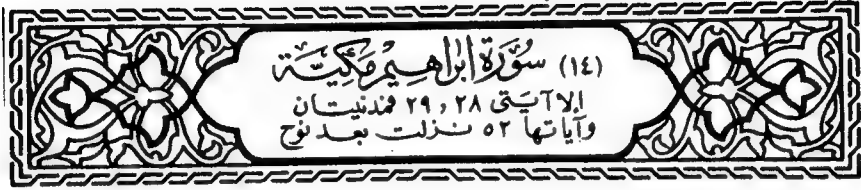 (١٤) سُورَة إبراهِيم مَكيَّة
إلا آيتى ٢٨ و ٢٩ فمدنيتان
وآياتها ٥٢ نزلت بعد نوح